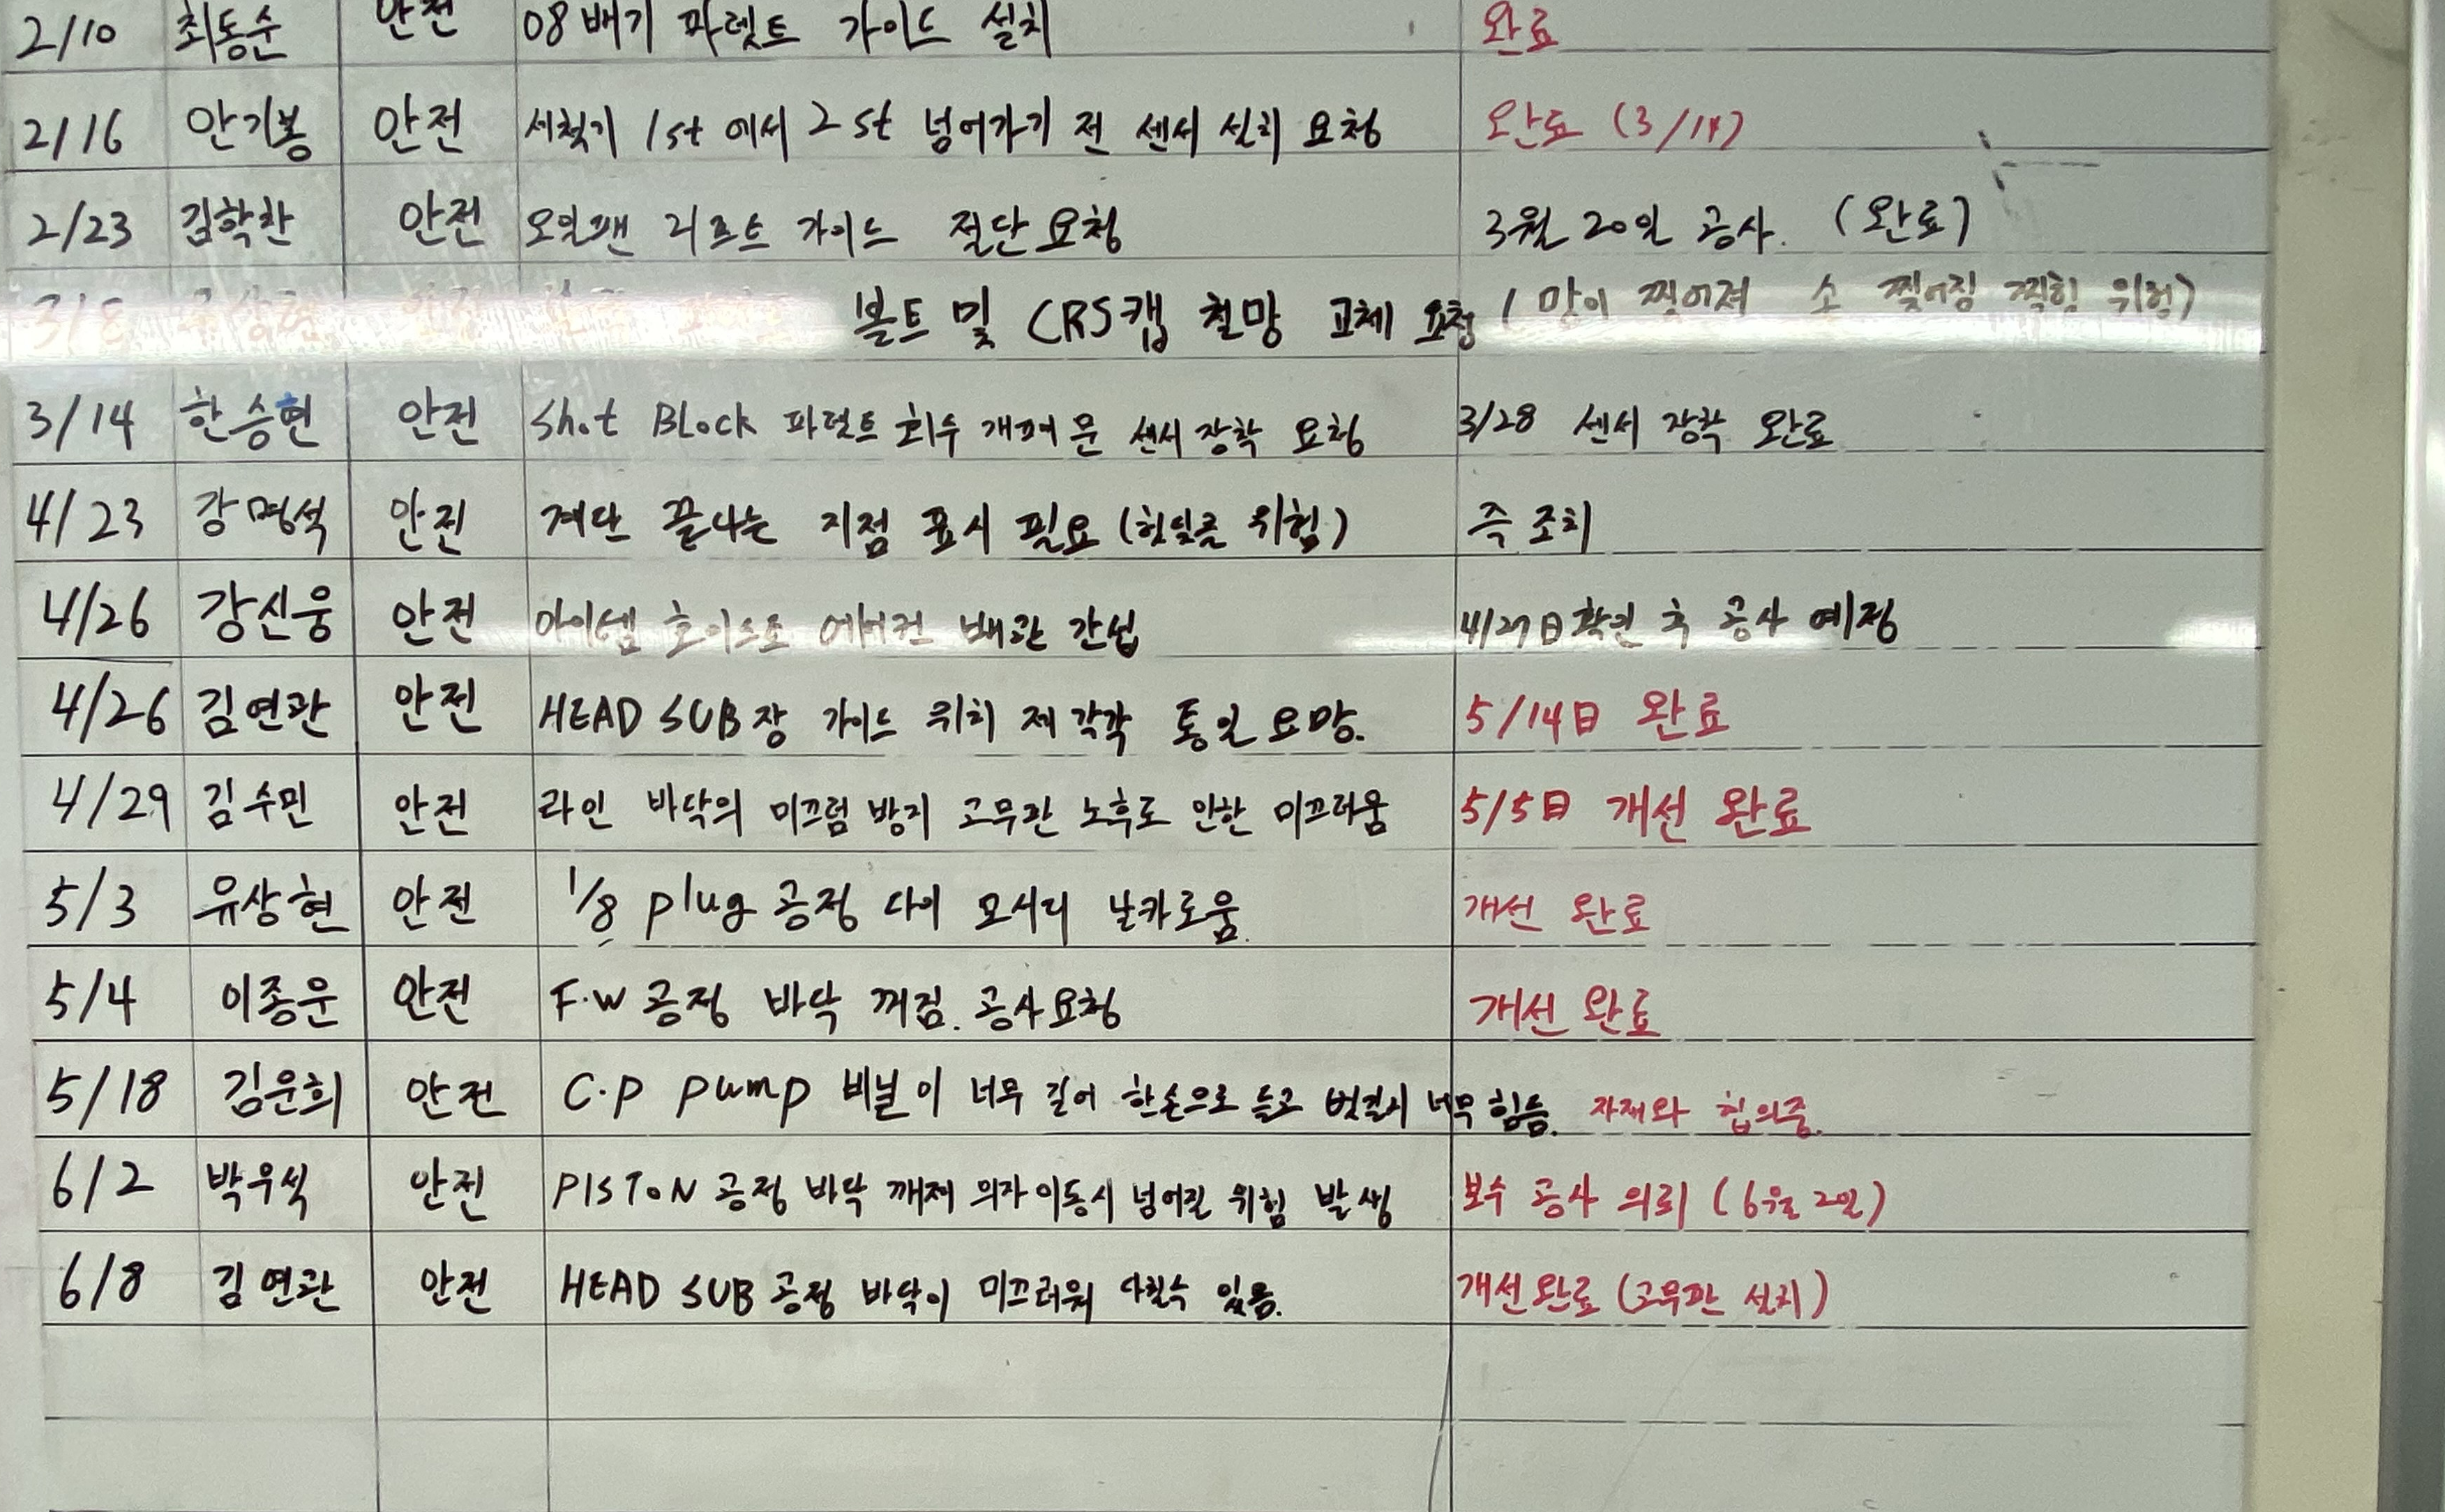 2/10 최동순 안전 08배기 파렛트 가이드 설치 완료
2/16 안기봉 안전 세척기 1st 에서 2st 넘어가기 전 센서 설치 요청 완료 (3/14)
2/23 김학찬 안전 오일팬 리프트 가이드 절단 요청 3월 20일 공사. (완료)
3/8 안전 볼트 및 CRS캡 철망 교체 요청 (망이 찢어져 손 찢어짐 찍힘 위험)
3/14 한승현 안전 Shot BLock 파렛트 회수 개폐문 센서 장착 요청 3/28 센서 장착 완료
4/23 강명석 안전 계단 끝나는 지점 표시 필요 (헛딛음 위험) 즉 조치
4/26 강신웅 안전 아이템 호이스트 에어컨 배관 간섭 4/27日 확인 후 공사 예정
4/26 김연관 안전 HEAD SUB장 가이드 위치 제각각 통일 요망. 5/14日 완료
4/29 김수민 안전 라인 바닥의 미끄럼 방지 고무판 노후로 인한 미끄러움 5/5日 개선 완료
5/3 유상현 안전 1/8 plug 공정 다이 모서리 날카로움. 개선 완료
5/4 이종운 안전 F.W 공정 바닥 꺼짐. 공사요청 개선 완료
5/18 김운희 안전 C.P pump 비닐이 너무 길어 한손으로 들고 벗길시 너무 힘듬. 자재와 협의중.
6/2 박우석 안전 PISTON 공정 바닥 깨져 의자 이동시 넘어질 위험 발생 보수 공사 의뢰 (6월 2일)
6/8 김연관 안전 HEAD SUB 공정 바닥이 미끄러워 다칠수 있음. 개선완료 (고무판 설치)